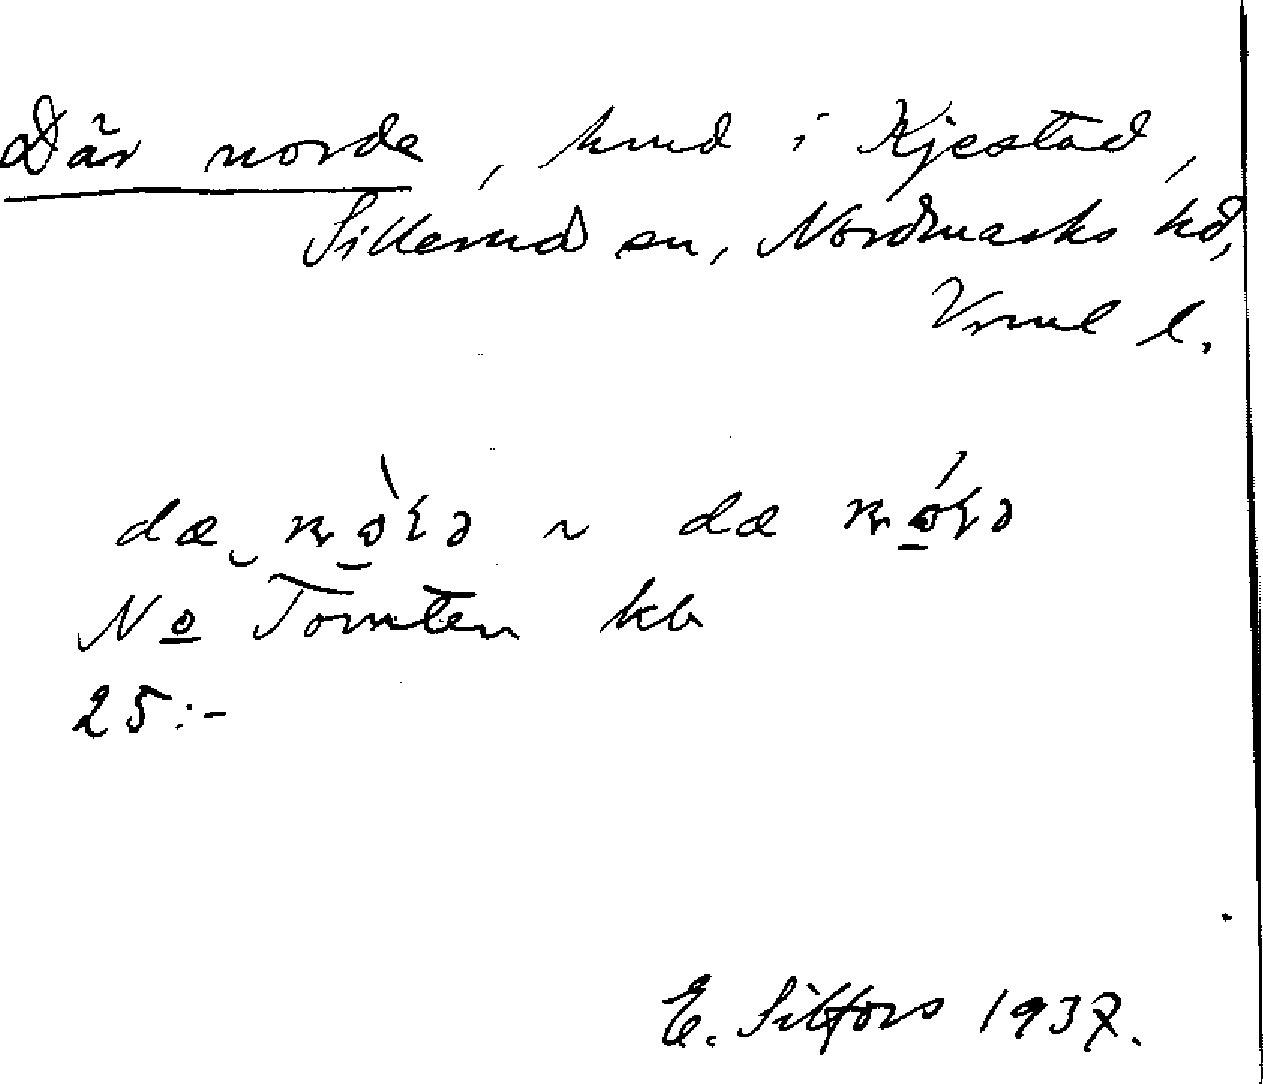 Där norde, hmd i Kjestad,
Sillerud sn, Nordmarks hd,
Vrml l.
dæ
N o Tomten kb
25:-
E. Silfors 1937.